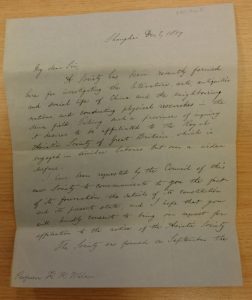 Shanghai Dec 5, 1857
My dear Sir,
A Society has been recently formed
here for investigating the literature, arts, antiquities
and social life of China and the neighbouring
nations and conducting physical researches in the
same field. Being and a province of
it desires to be affiliated to the Royal
Asiatic Society of Great Britain which is
engaged in similar labours but on a wider
surface.
I have been requested by the Council of this
new Society to communicate to you the fact
of its formation, the details of its constitution
and its present state, and I hope that you
will kindly consent to bring our request for
affiliation to the notice of the Asiatic Society
The Society was formed in September the
Professor H. H. Wilson